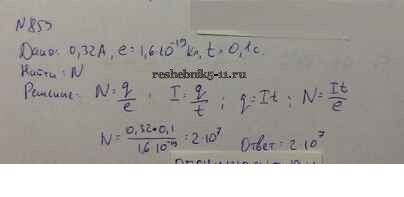 N853
Дано: 0,32А, e = 1,6·10⁻¹⁹Кл, t = 0,1с.
Найти: N
reshebnik5-11.ru
Решение: N = q/e ; I = q/t ; q = It ; N = It/e
N = 0,32·0,1/1,6·10⁻¹⁹ = 2·10⁷ Ответ: 2·10⁷